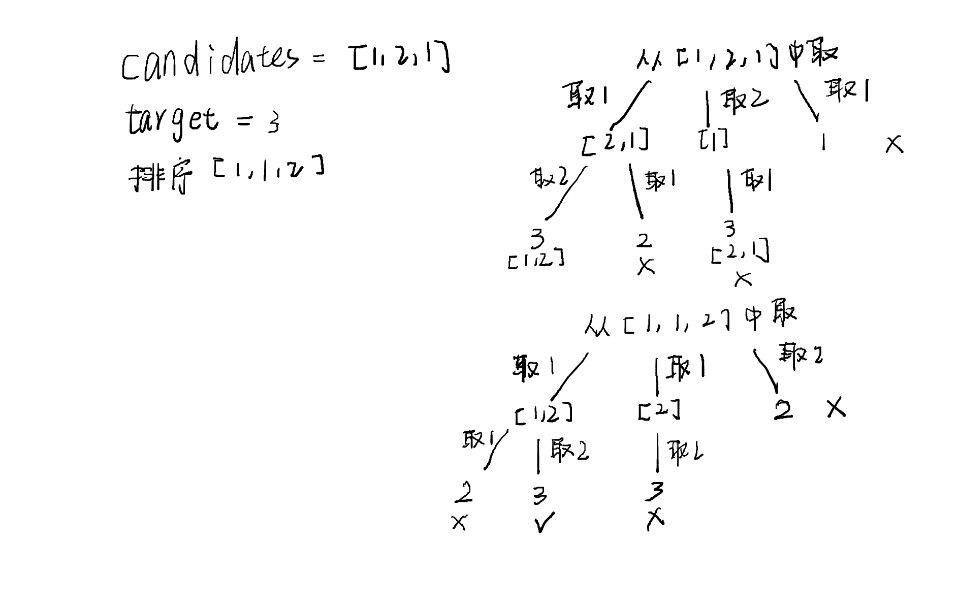 candidates = [1,2,1]
target = 3
排序 [1,1,2]
从[1,2,1]中取
取1 取2 取1
[2,1] [1] 1 x
取2 取1 取1
3 2 3
[1,2] x [2,1]
x
从[1,1,2]中取
取1 取1 取2
[1,2] [2] 2 x
取1 取2 取2
2 3 3
x ✓ x